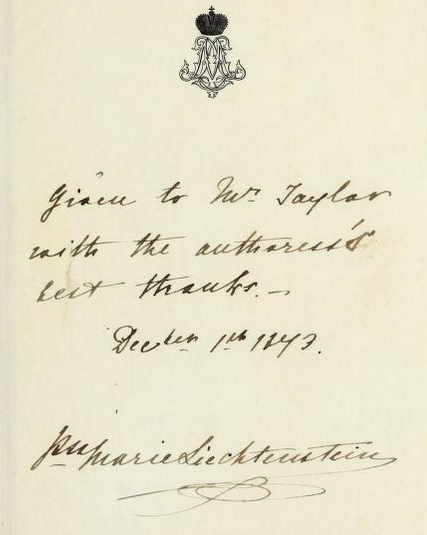 Given to Mr Taylor
with the authoress's
best thanks. —
Decber 1st 1873.
Pss Marie Liechtenstein